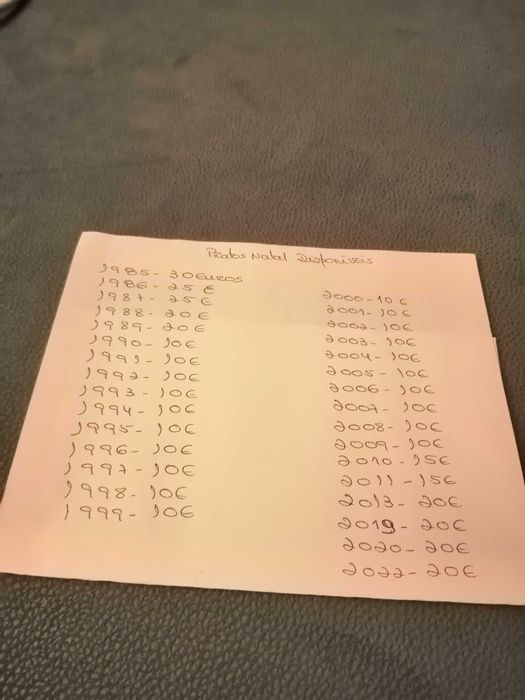 Pratos Natal Disponíveis
1985- 30 Euros
1986- 25 €
1987- 25€
1988- 20€
1989- 20€
1990- 10€
1991- 10€
1992- 10€
1993- 10€
1994- 10€
1995- 10€
1996- 10€
1997- 10€
1998- 10€
1999- 10€
2000- 10€
2001- 10€
2002- 10€
2003- 10€
2004- 10€
2005- 10€
2006- 10€
2007- 10€
2008- 10€
2009- 10€
2010- 15€
2011- 15€
2013- 20€
2019- 20€
2020- 20€
2022- 20€